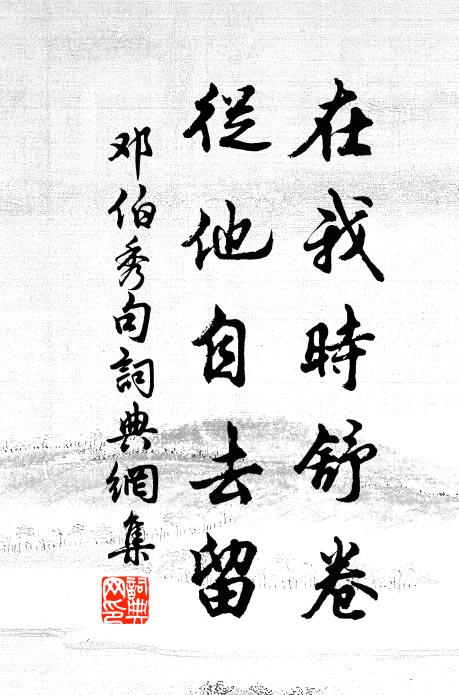 在我時舒卷
從他自去留
邓伯秀句詞典網集
詞典网印